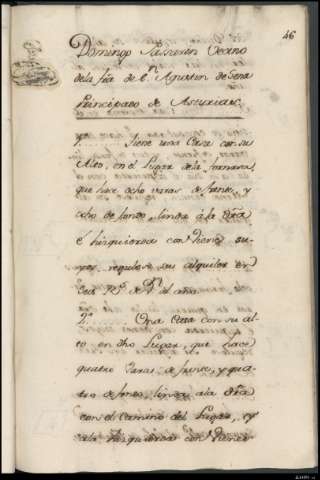 46
Domingo Vecino
de la fra. de Sn. Agustin de Sena
Principado de Asturias
1º. Tiene una Casa con su
Alto, en el Lugar de la
que hace ocho varas de frente, y
ocho de fondo, linda à la dra
è hizquierda con vienes su-
yos regulose su alquiler en
Rs. de Vn. al año
2º. Otra Casa con su al-
to en dho Lugar, que hace
quatro Varas de frente, y qua-
tro de fondo, linda ala dra
con el Camino del Lugar, y
ala hizquierda con vienes